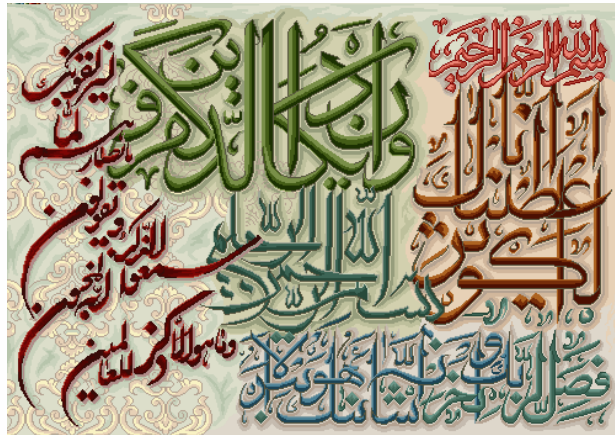 بسم الله الرحمن الرحيم
انا اعطيناك
الكوثر
فصل لربك وانحر ان شانئك هو الابتر
بسم الله الرحمن الرحيم
وان يكاد الذين كفروا
ليزلقونك
بابصارهم لما
سمعوا الذكر ويقولون
انه لمجنون
وما هو الا ذكر للعالمين